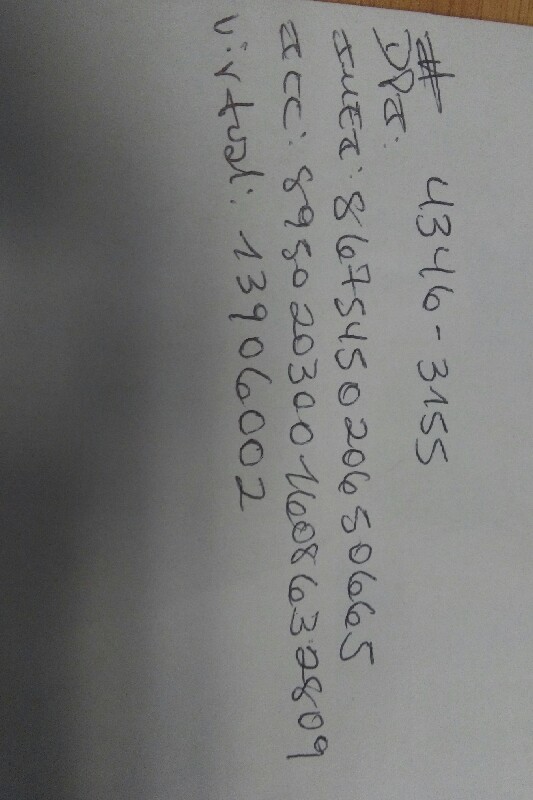 # 4346-3155
DPI:
IMEI: 867545020650665
ICC: 8950203001608632809
Virtual: 13906002